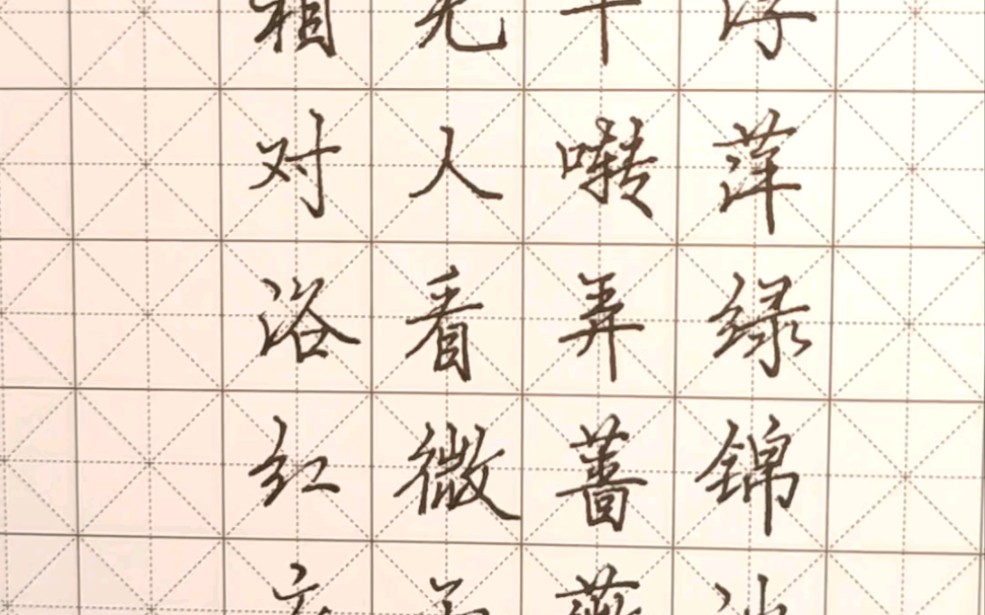 浮萍绿锦
千啭弄蔷
无人看微
相对浴红